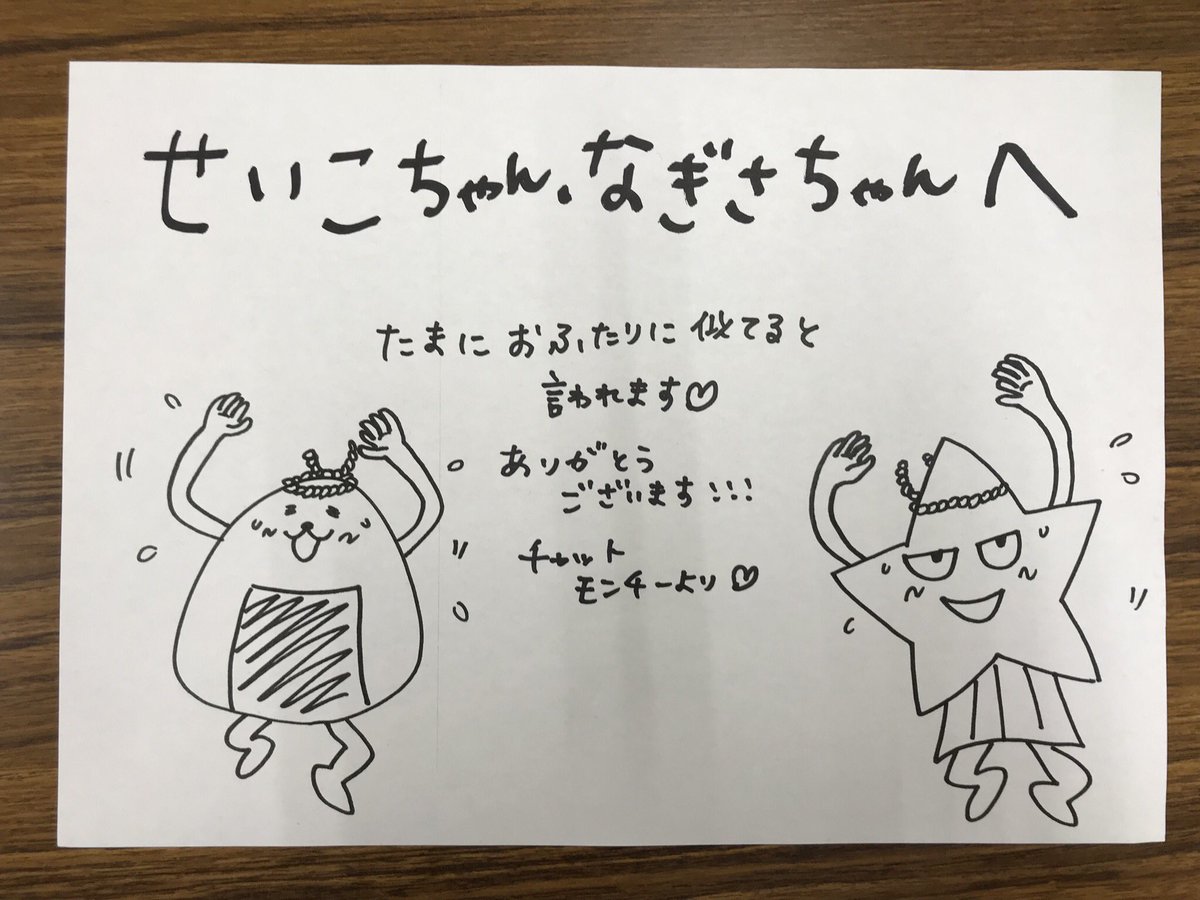 せいこちゃん、なぎさちゃんへ
たまに おふたりに 似てると
言われます♡
ありがとう
ございます!!!
チャット
モンチーより♡